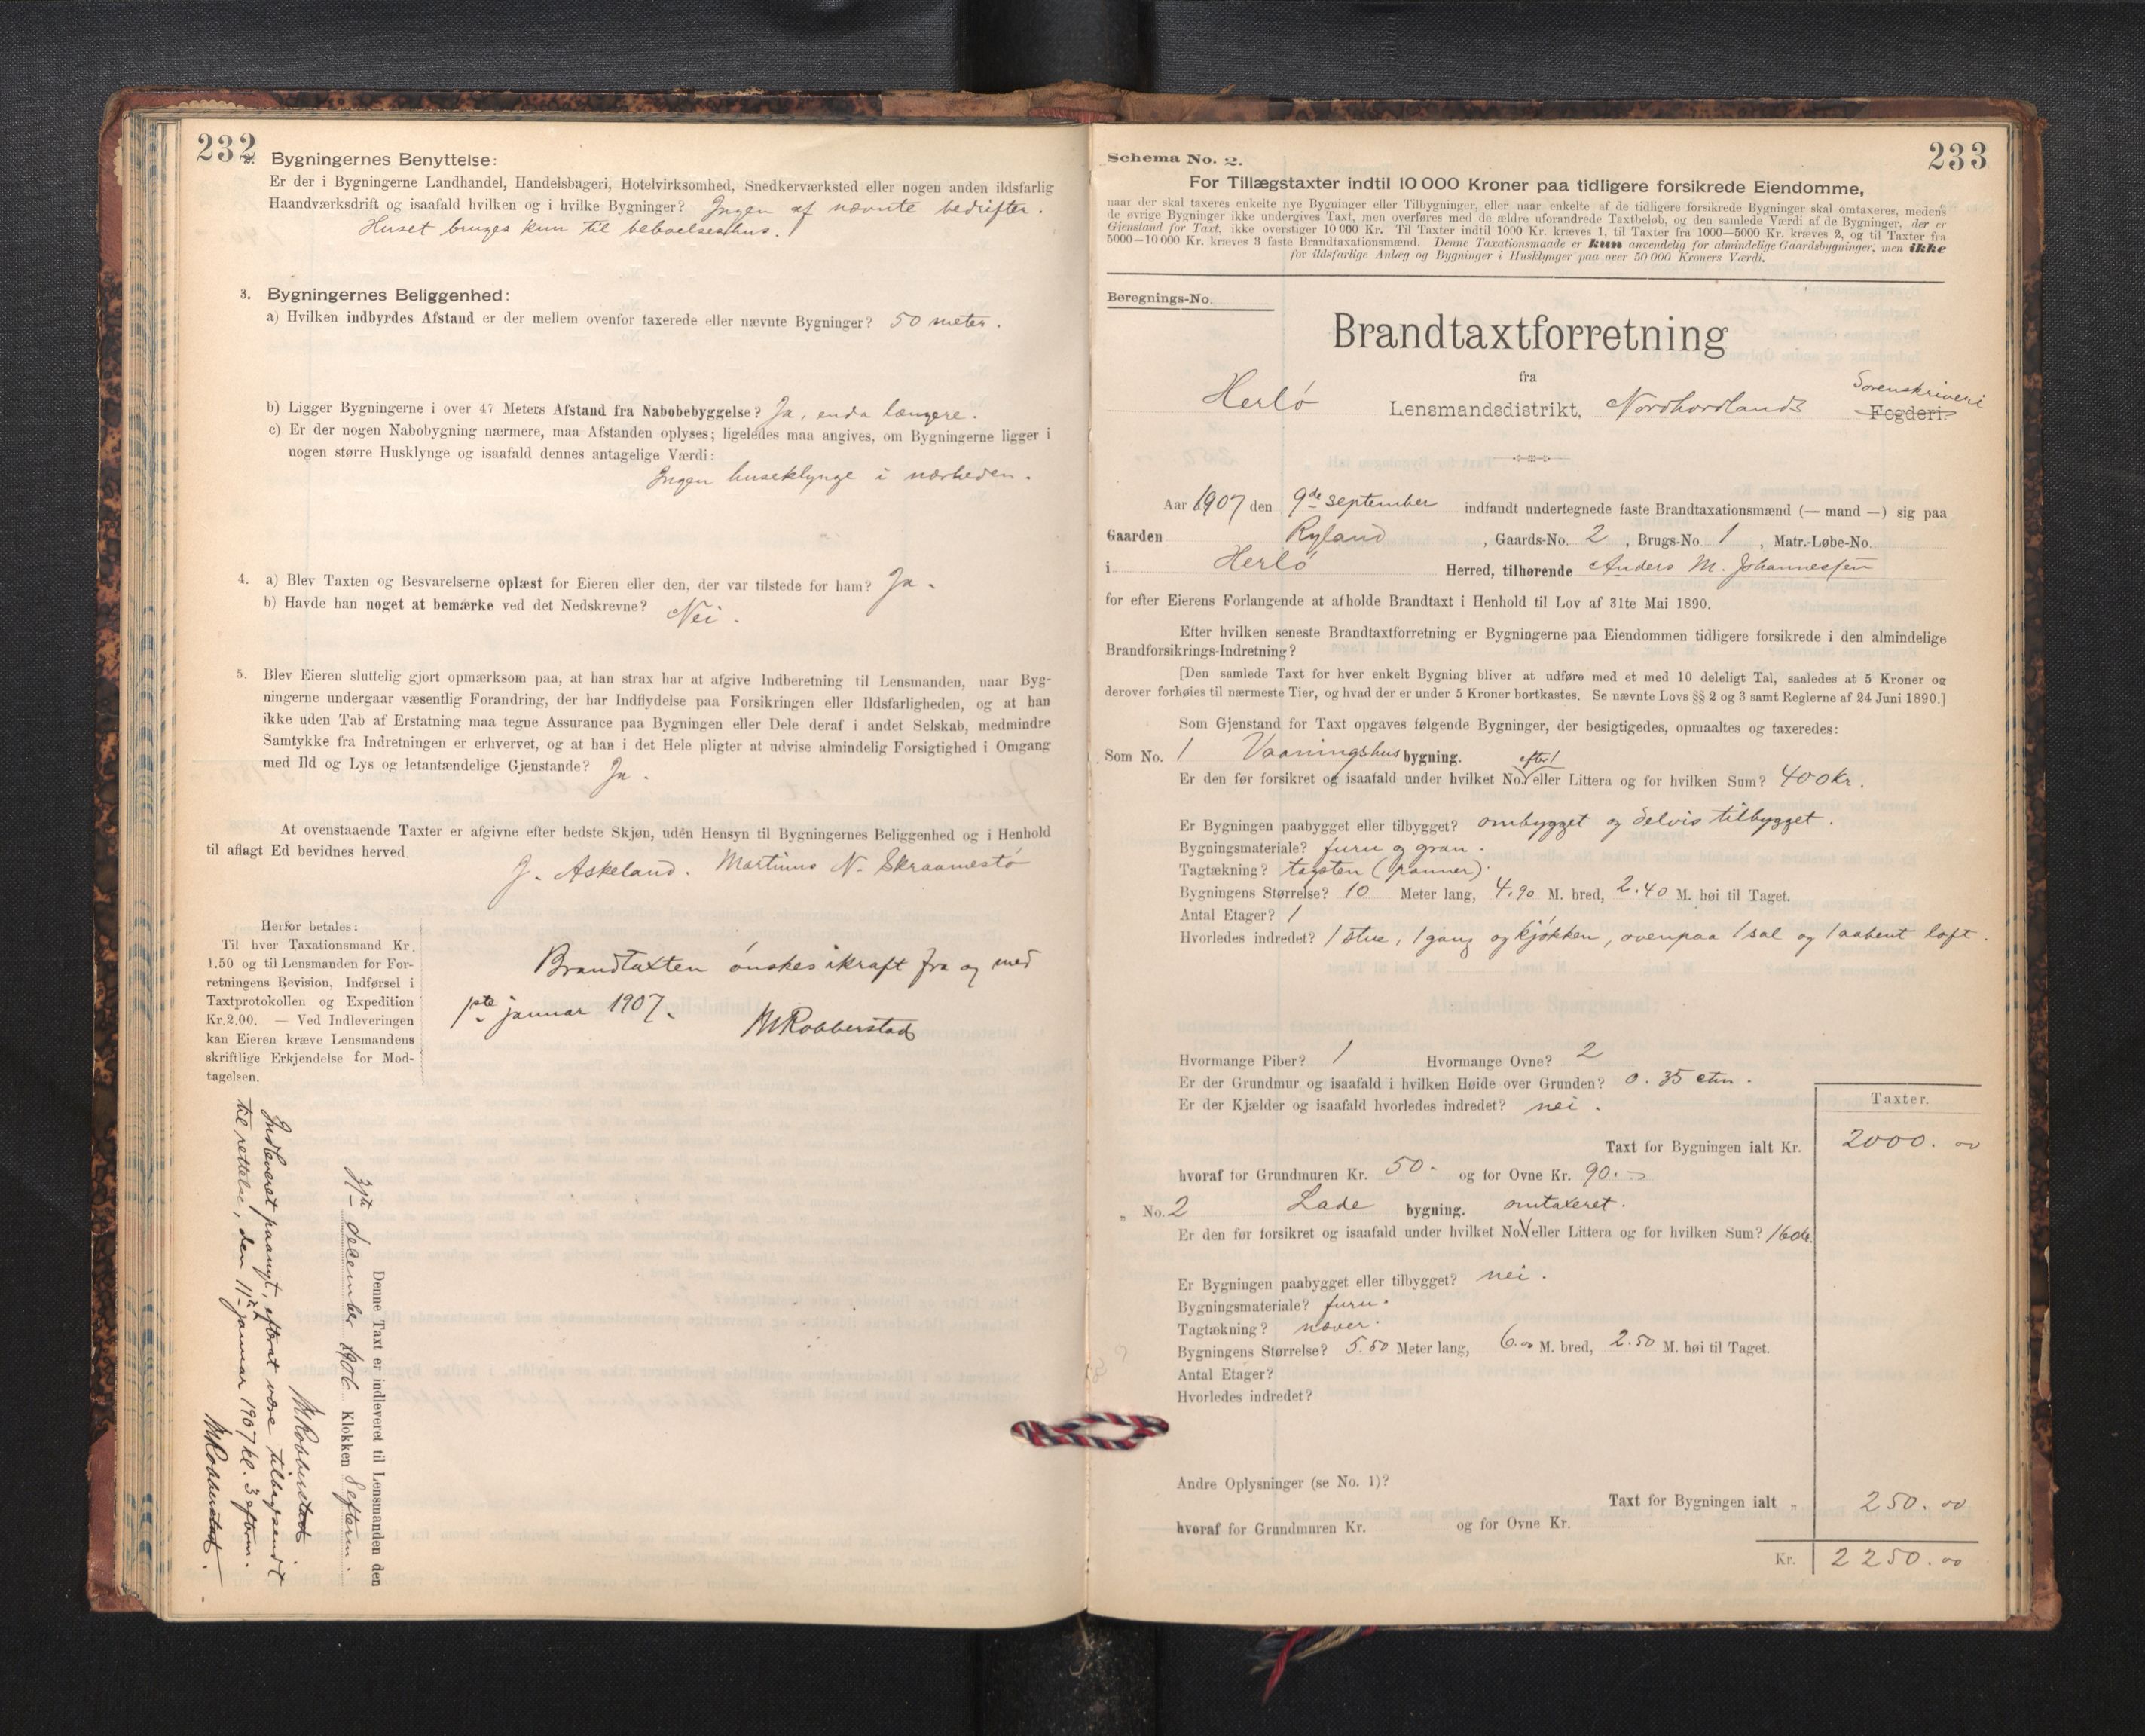 232
2. Bygningernes Benyttelse:
Er der i Bygningerne Landhandel, Handelsbageri, Hotelvirksomhed, Snedkerværksted eller nogen anden ildsfarlig
Haandværksdrift og isaafald hvilken og i hvilke Bygninger? Ingen af nævnte bedrifter.
Huset bruges kun til beboelseshus.
3. Bygningernes Beliggenhed:
a) Hvilken indbyrdes Afstand er der mellem ovenfor taxerede eller nævnte Bygninger? 50 meter.
b) Ligger Bygningerne i over 47 Meters Afstand fra Nabobebyggelse? Ja, enda længere.
c) Er der nogen Nabobygning nærmere, maa Afstanden oplyses; ligeledes maa angives, om Bygningerne ligger i
nogen større Husklynge og isaafald dennes antagelige Værdi:
Ingen huseklynge i nærheden.
4. a) Blev Taxten og Besvarelserne oplæst for Eieren eller den, der var tilstede for ham? Ja.
b) Havde han noget at bemærke ved det Nedskrevne? Nei.
5. Blev Eieren sluttelig gjort opmærksom paa, at han strax har at afgive Indberetning til Lensmanden, naar Byg-
ningerne undergaar væsentlig Forandring, der har Indflydelse paa Forsikringen eller Ildsfarligheden, og at han
ikke uden Tab af Erstatning maa tegne Assurance paa Bygningen eller Dele deraf i andet Selskab, medmindre
Samtykke fra Indretningen er erhvervet, og at han i det Hele pligter at udvise almindelig Forsigtighed i Omgang
med Ild og Lys og letantændelige Gjenstande? Ja.
At ovenstaaende Taxter er afgivne efter bedste Skjøn, uden Hensyn til Bygningernes Beliggenhed og i Henhold
til aflagt Ed bevidnes herved.
J. Askeland. Martinus N. Skraamestø
Herfor betales:
Til hver Taxationsmand Kr.
1.50 og til Lensmanden for For-
retningens Revision, Indførsel i
Taxtprotokollen og Expedition
Kr. 2.00. — Ved Indleveringen
kan Eieren kræve Lensmandens
skriftlige Erkjendelse for Mod-
tagelsen.
Brandtaxten ønskes ikraft fra og med
1ste januar 1907.
MRobberstad
Denne Taxt er indleveret til Lensmanden den
31te december 1906 Klokken 8 efterm.
MRobberstad.
Indleveret paanyt, efterat være tilbagesendt
til rettelse, den 11te januar 1907 kl. 3 efterm.
MRobberstad.
233
Schema No. 2.
For Tillægstaxter indtil 10 000 Kroner paa tidligere forsikrede Eiendomme,
naar der skal taxeres enkelte nye Bygninger eller Tilbygninger, eller naar enkelte af de tidligere forsikrede Bygninger skal omtaxeres, medens
de øvrige Bygninger ikke undergives Taxt, men overføres med de ældre uforandrede Taxtbeløb, og den samlede Værdi af de Bygninger, der er
Gjenstand for Taxt, ikke overstiger 10 000 Kr. Til Taxter indtil 1000 Kr. kræves 1, til Taxter fra 1000—5000 Kr. kræves 2, og til Taxter fra
5000—10 000 Kr. kræves 3 faste Brandtaxationsmænd. Denne Taxationsmaade er kun anvendelig for almindelige Gaardsbygninger, men ikke
for ildsfarlige Anlæg og Bygninger i Husklynger paa over 50 000 Kroners Værdi.
Beregnings-No.
Brandtaxtforretning
fra
Herlø Lensmandsdistrikt, Nordhordlands Fogderi. Sorenskriveri
Aar 1907 den 9de september indfandt undertegnede faste Brandtaxationsmænd (— mand —) sig paa
Gaarden Ryland, Gaards-No. 2, Brugs-No. 1, Matr.-Løbe-No.
i Herlø Herred, tilhørende Anders M. Johannessen
for efter Eierens Forlangende at afholde Brandtaxt i Henhold til Lov af 31te Mai 1890.
Efter hvilken seneste Brandtaxtforretning er Bygningerne paa Eiendommen tidligere forsikrede i den almindelige
Brandforsikrings-Indretning?
[Den samlede Taxt for hver enkelt Bygning bliver at udføre med et med 10 deleligt Tal, saaledes at 5 Kroner og
derover forhøies til nærmeste Tier, og hvad der er under 5 Kroner bortkastes. Se nævnte Lovs §§ 2 og 3 samt Reglerne af 24 Juni 1890.]
Som Gjenstand for Taxt opgaves følgende Bygninger, der besigtigedes, opmaaltes og taxeredes:
Som No. 1 Vaaningshus bygning.
Er den før forsikret og isaafald under hvilket No. eller Littera og for hvilken Sum? 400 kr.
Er Bygningen paabygget eller tilbygget? ombygget og delvis tilbygget.
Bygningsmateriale? furu og gran.
Tagtækning? tagsten (panner).
Bygningens Størrelse? 10 Meter lang, 4.90 M. bred, 2.40 M. høi til Taget.
Antal Etager? 1
Hvorledes indredet? 1 stue, 1 gang og kjøkken, ovenpaa 1 sal og 1 aabent loft.
Hvormange Piber? 1 Hvormange Ovne? 2
Er der Grundmur og isaafald i hvilken Høide over Grunden? 0.35 ctm.
Er der Kjælder og isaafald hvorledes indredet? nei.
Taxter.
Taxt for Bygningen ialt Kr. 2000.00
hvoraf for Grundmuren Kr. 50.- og for Ovne Kr. 90.-
„ No. 2 Lade bygning. omtaxeret.
Er den før forsikret og isaafald under hvilket No. eller Littera og for hvilken Sum?
Er Bygningen paabygget eller tilbygget? nei.
Bygningsmateriale? furu.
Tagtækning? næver.
Bygningens Størrelse? 5.50 Meter lang, 6.00 M. bred, 2.50 M. høi til Taget.
Antal Etager?
Hvorledes indredet?
Andre Oplysninger (se No. 1)?
Taxt for Bygningen ialt „ 250.00
hvoraf for Grundmuren Kr. og for Ovne Kr.
Kr. 2250.00